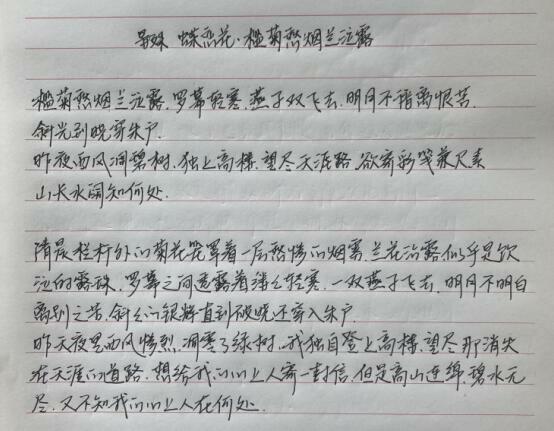 晏殊 蝶恋花·槛菊愁烟兰泣露
槛菊愁烟兰泣露.罗幕轻寒.燕子双飞去.明月不谙离恨苦.
斜光到晓穿朱户.
昨夜西风凋碧树.独上高楼.望尽天涯路.欲寄彩笺兼尺素
山长水阔知何处.
清晨栏杆外的菊花笼罩着一层愁惨的烟雾.兰花沾露似乎是饮
泣的露珠.罗幕之间透露着缕缕轻寒.一双燕子飞去.明月不明白
离别之苦.斜斜的银辉直到破晓还穿入朱户.
昨天夜里西风惨烈.凋零了绿树.我独自登上高楼.望尽那消失
在天涯的道路.想给我的心上人寄一封信.但是高山连绵.碧水无
尽.又不知我的心上人在何处.